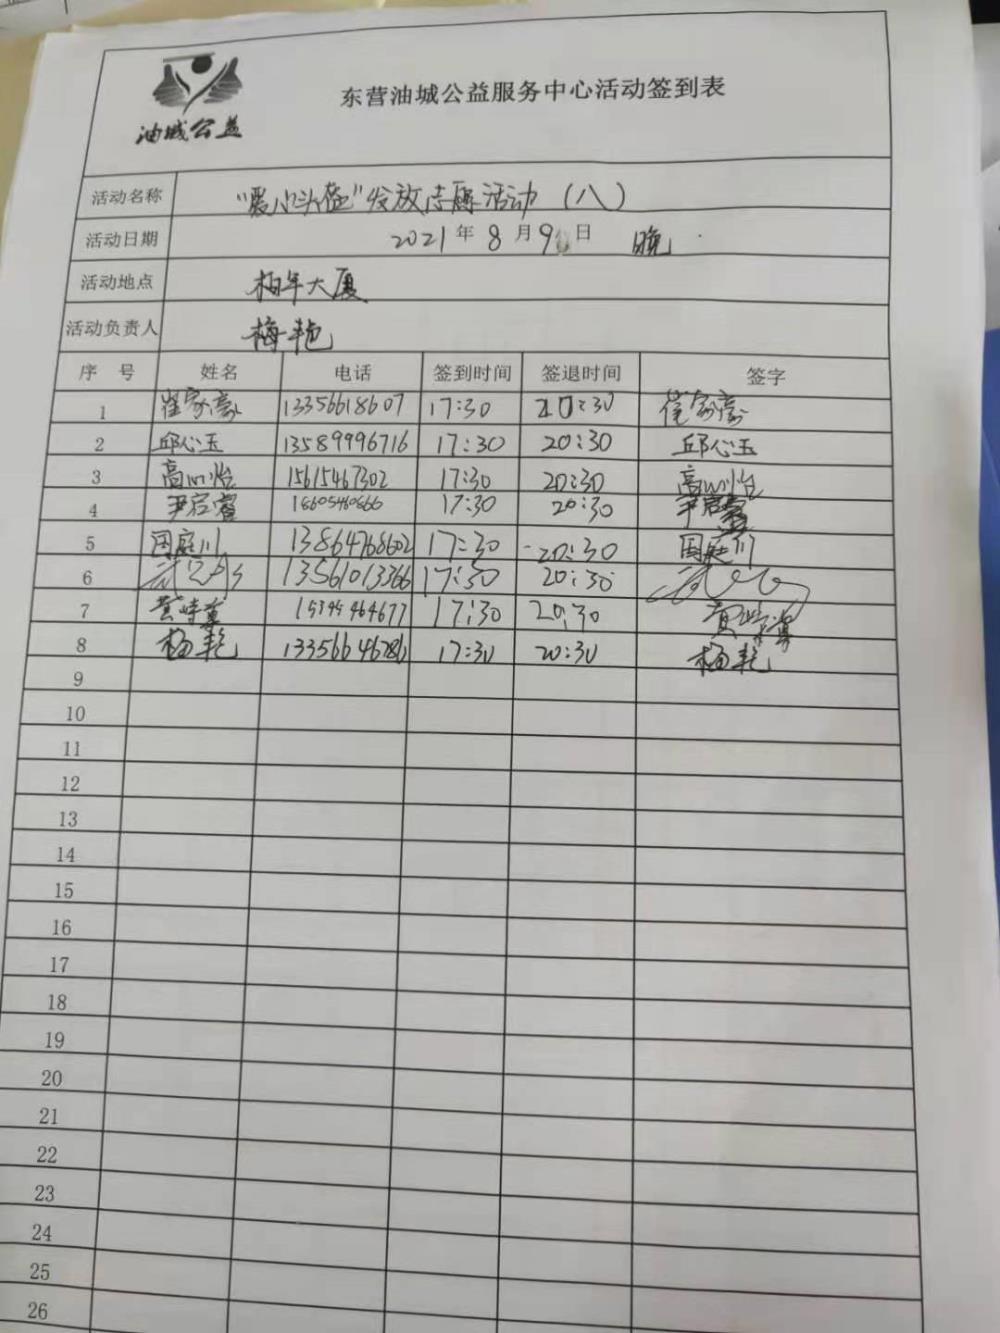 油城公益
东营油城公益服务中心活动签到表
活动名称 "爱心头盔"发放志愿活动（八）
活动日期 2021年8月9日 晚
活动地点 柏年大厦
活动负责人 梅艳
序 号 姓名 电话 签到时间 签退时间 签字
1 崔家豪 13356618607 17:30 20:30 崔家豪
2 邱心玉 13589996716 17:30 20:30 邱心玉
3 高心怡 15615467302 17:30 20:30 高心怡
4 尹启睿 18605460666 17:30 20:30 尹启睿
5 国庭川 13864768602 17:30 20:30 国庭川
6 13561013366 17:30 20:30
7 17:30 20:30
8 梅艳 13356646786 17:30 20:30 梅艳
9
10
11
12
13
14
15
16
17
18
19
20
21
22
23
24
25
26